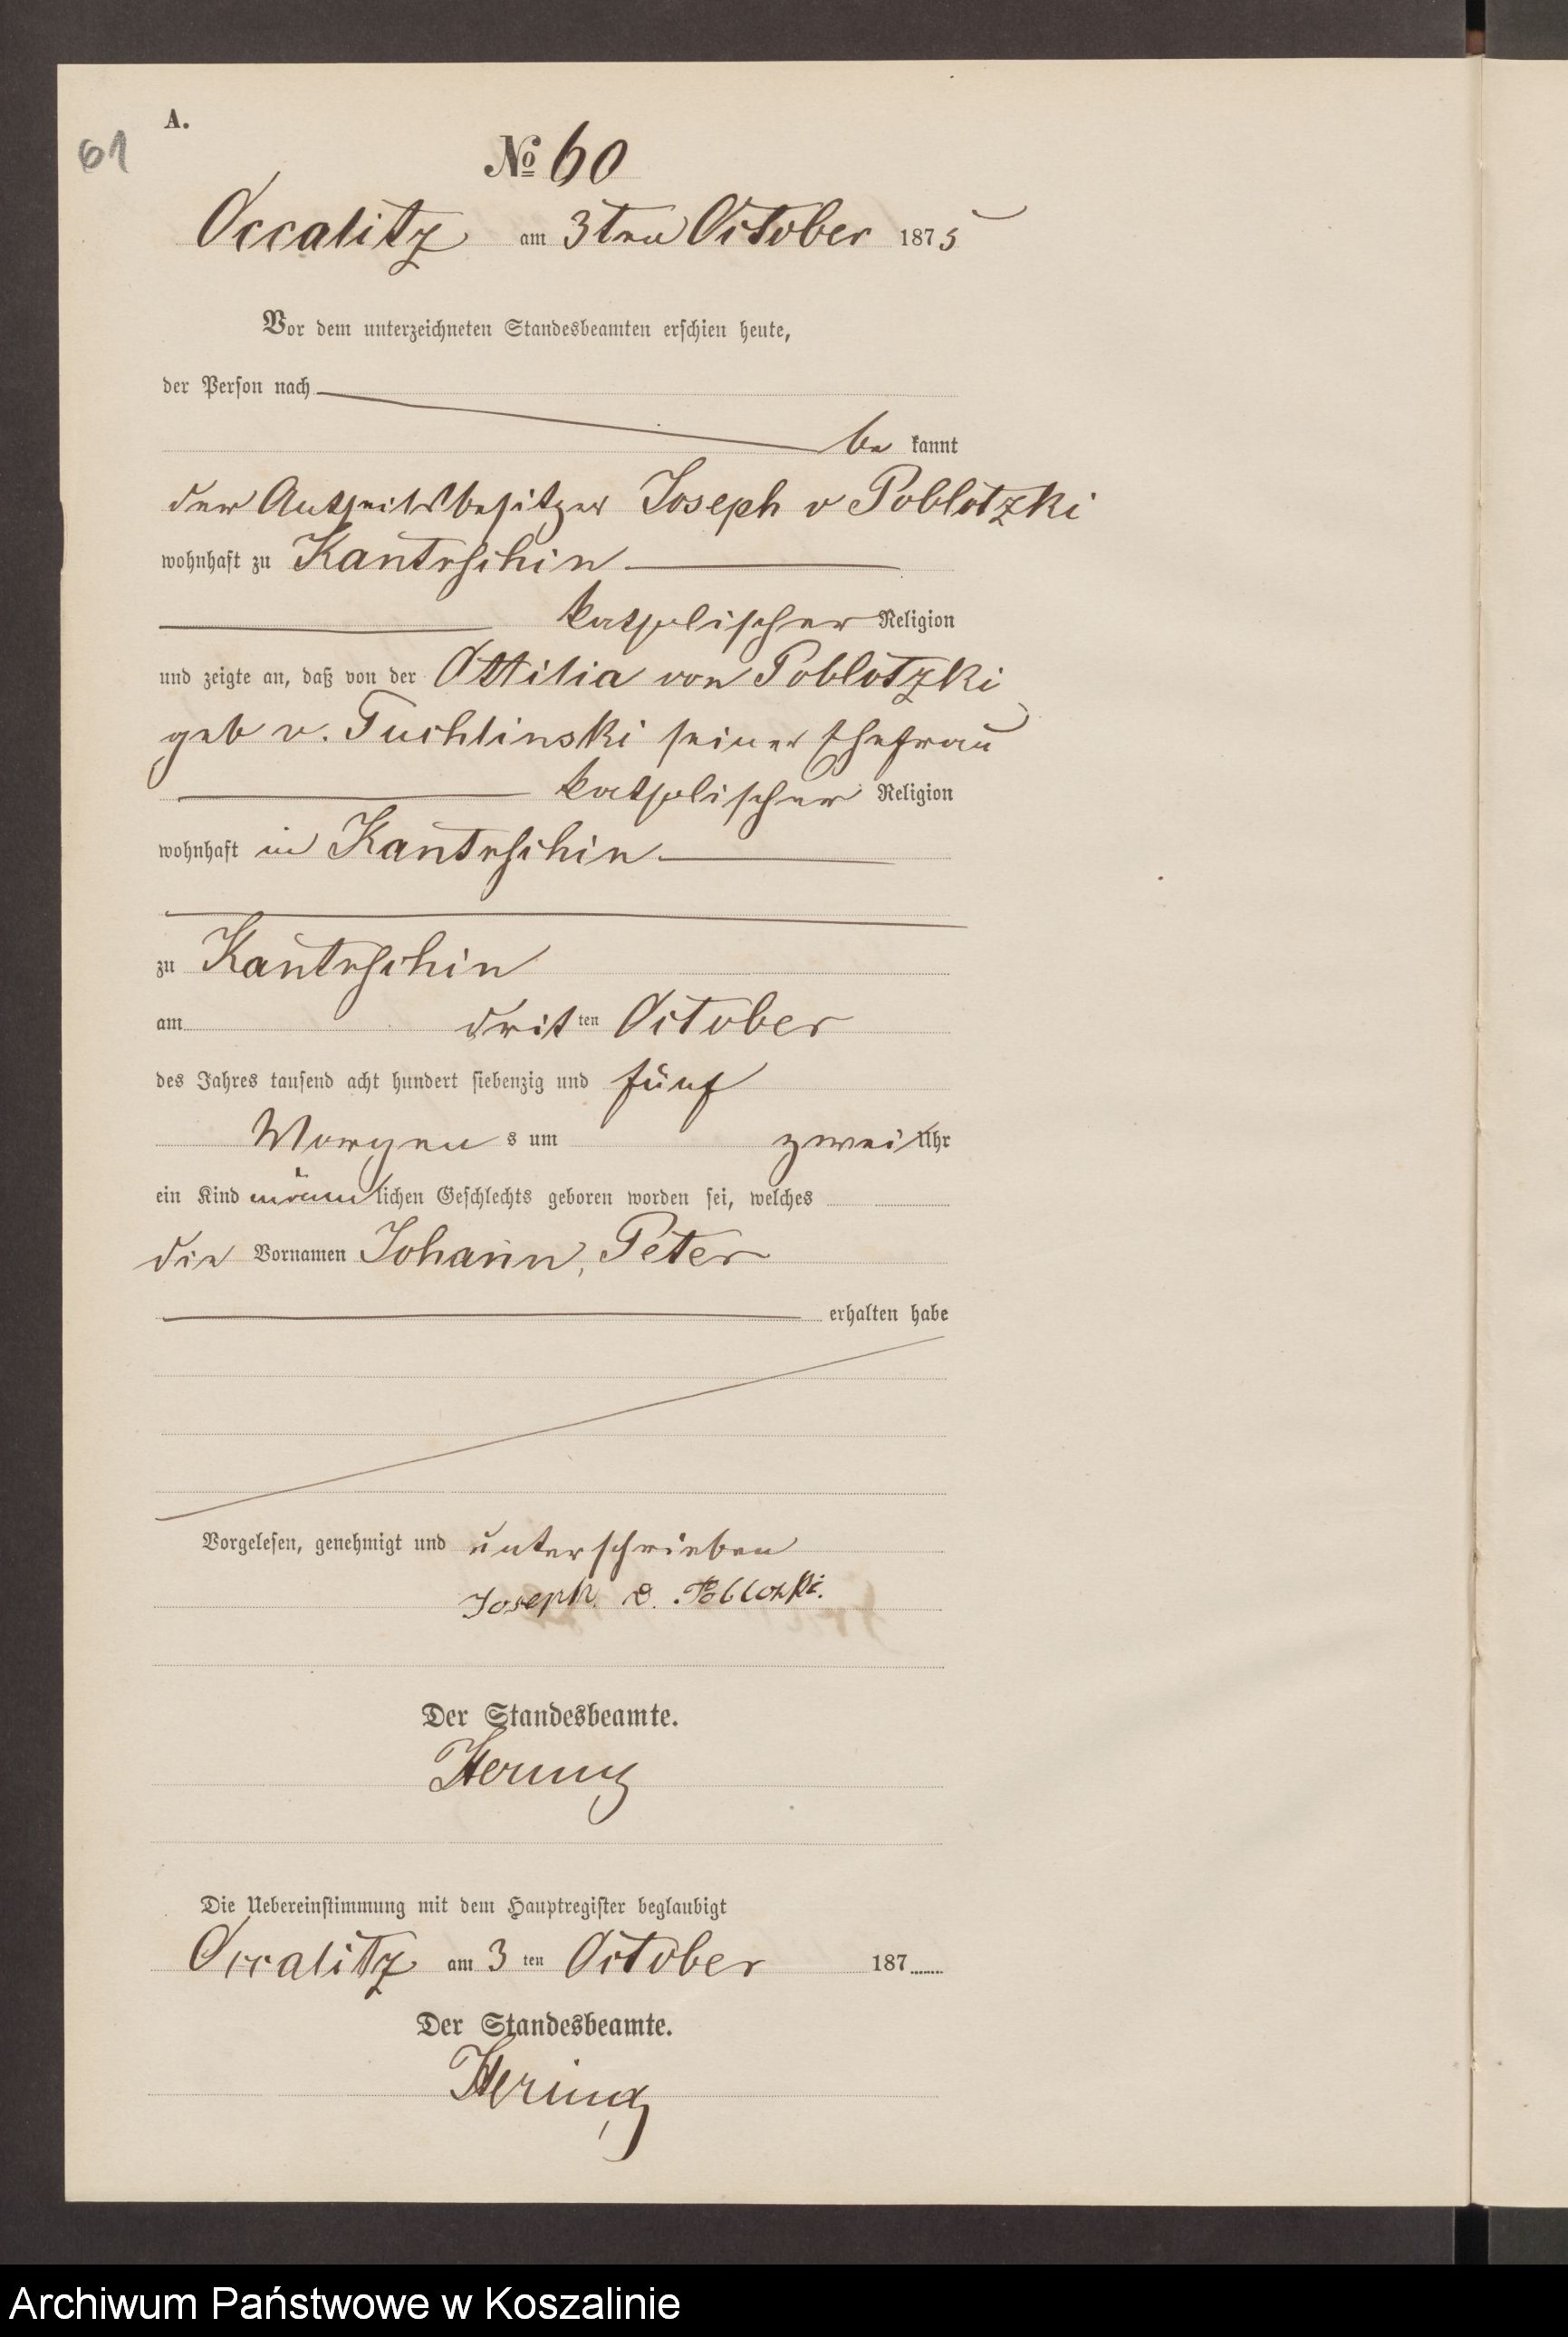 A.
61
№ 60
Occalitz am 3ten October 1875
Vor dem unterzeichneten Standesbeamten erschien heute,
der Person nach
be kannt
der Antheilsbesitzer Joseph v Poblotzki
wohnhaft zu Kantrschin
katholischer Religion
und zeigte an, daß von der Ottilia von Poblotzki
geb v. Tuchlinski seiner Ehefrau
katholischer Religion
wohnhaft in Kantrschin
zu Kantrschin
am drit ten October
des Jahres tausend acht hundert siebenzig und fünf
Morgen s um zwei Uhr
ein Kind männ lichen Geschlechts geboren worden sei, welches
die Vornamen Johann, Peter
erhalten habe
Vorgelesen, genehmigt und unterschrieben
Joseph. v. Poblotzki.
Der Standesbeamte.
Hering
Die Uebereinstimmung mit dem Hauptregister beglaubigt
Occalitz am 3 ten October 187
Der Standesbeamte.
Hering
Archiwum Państwowe w Koszalinie